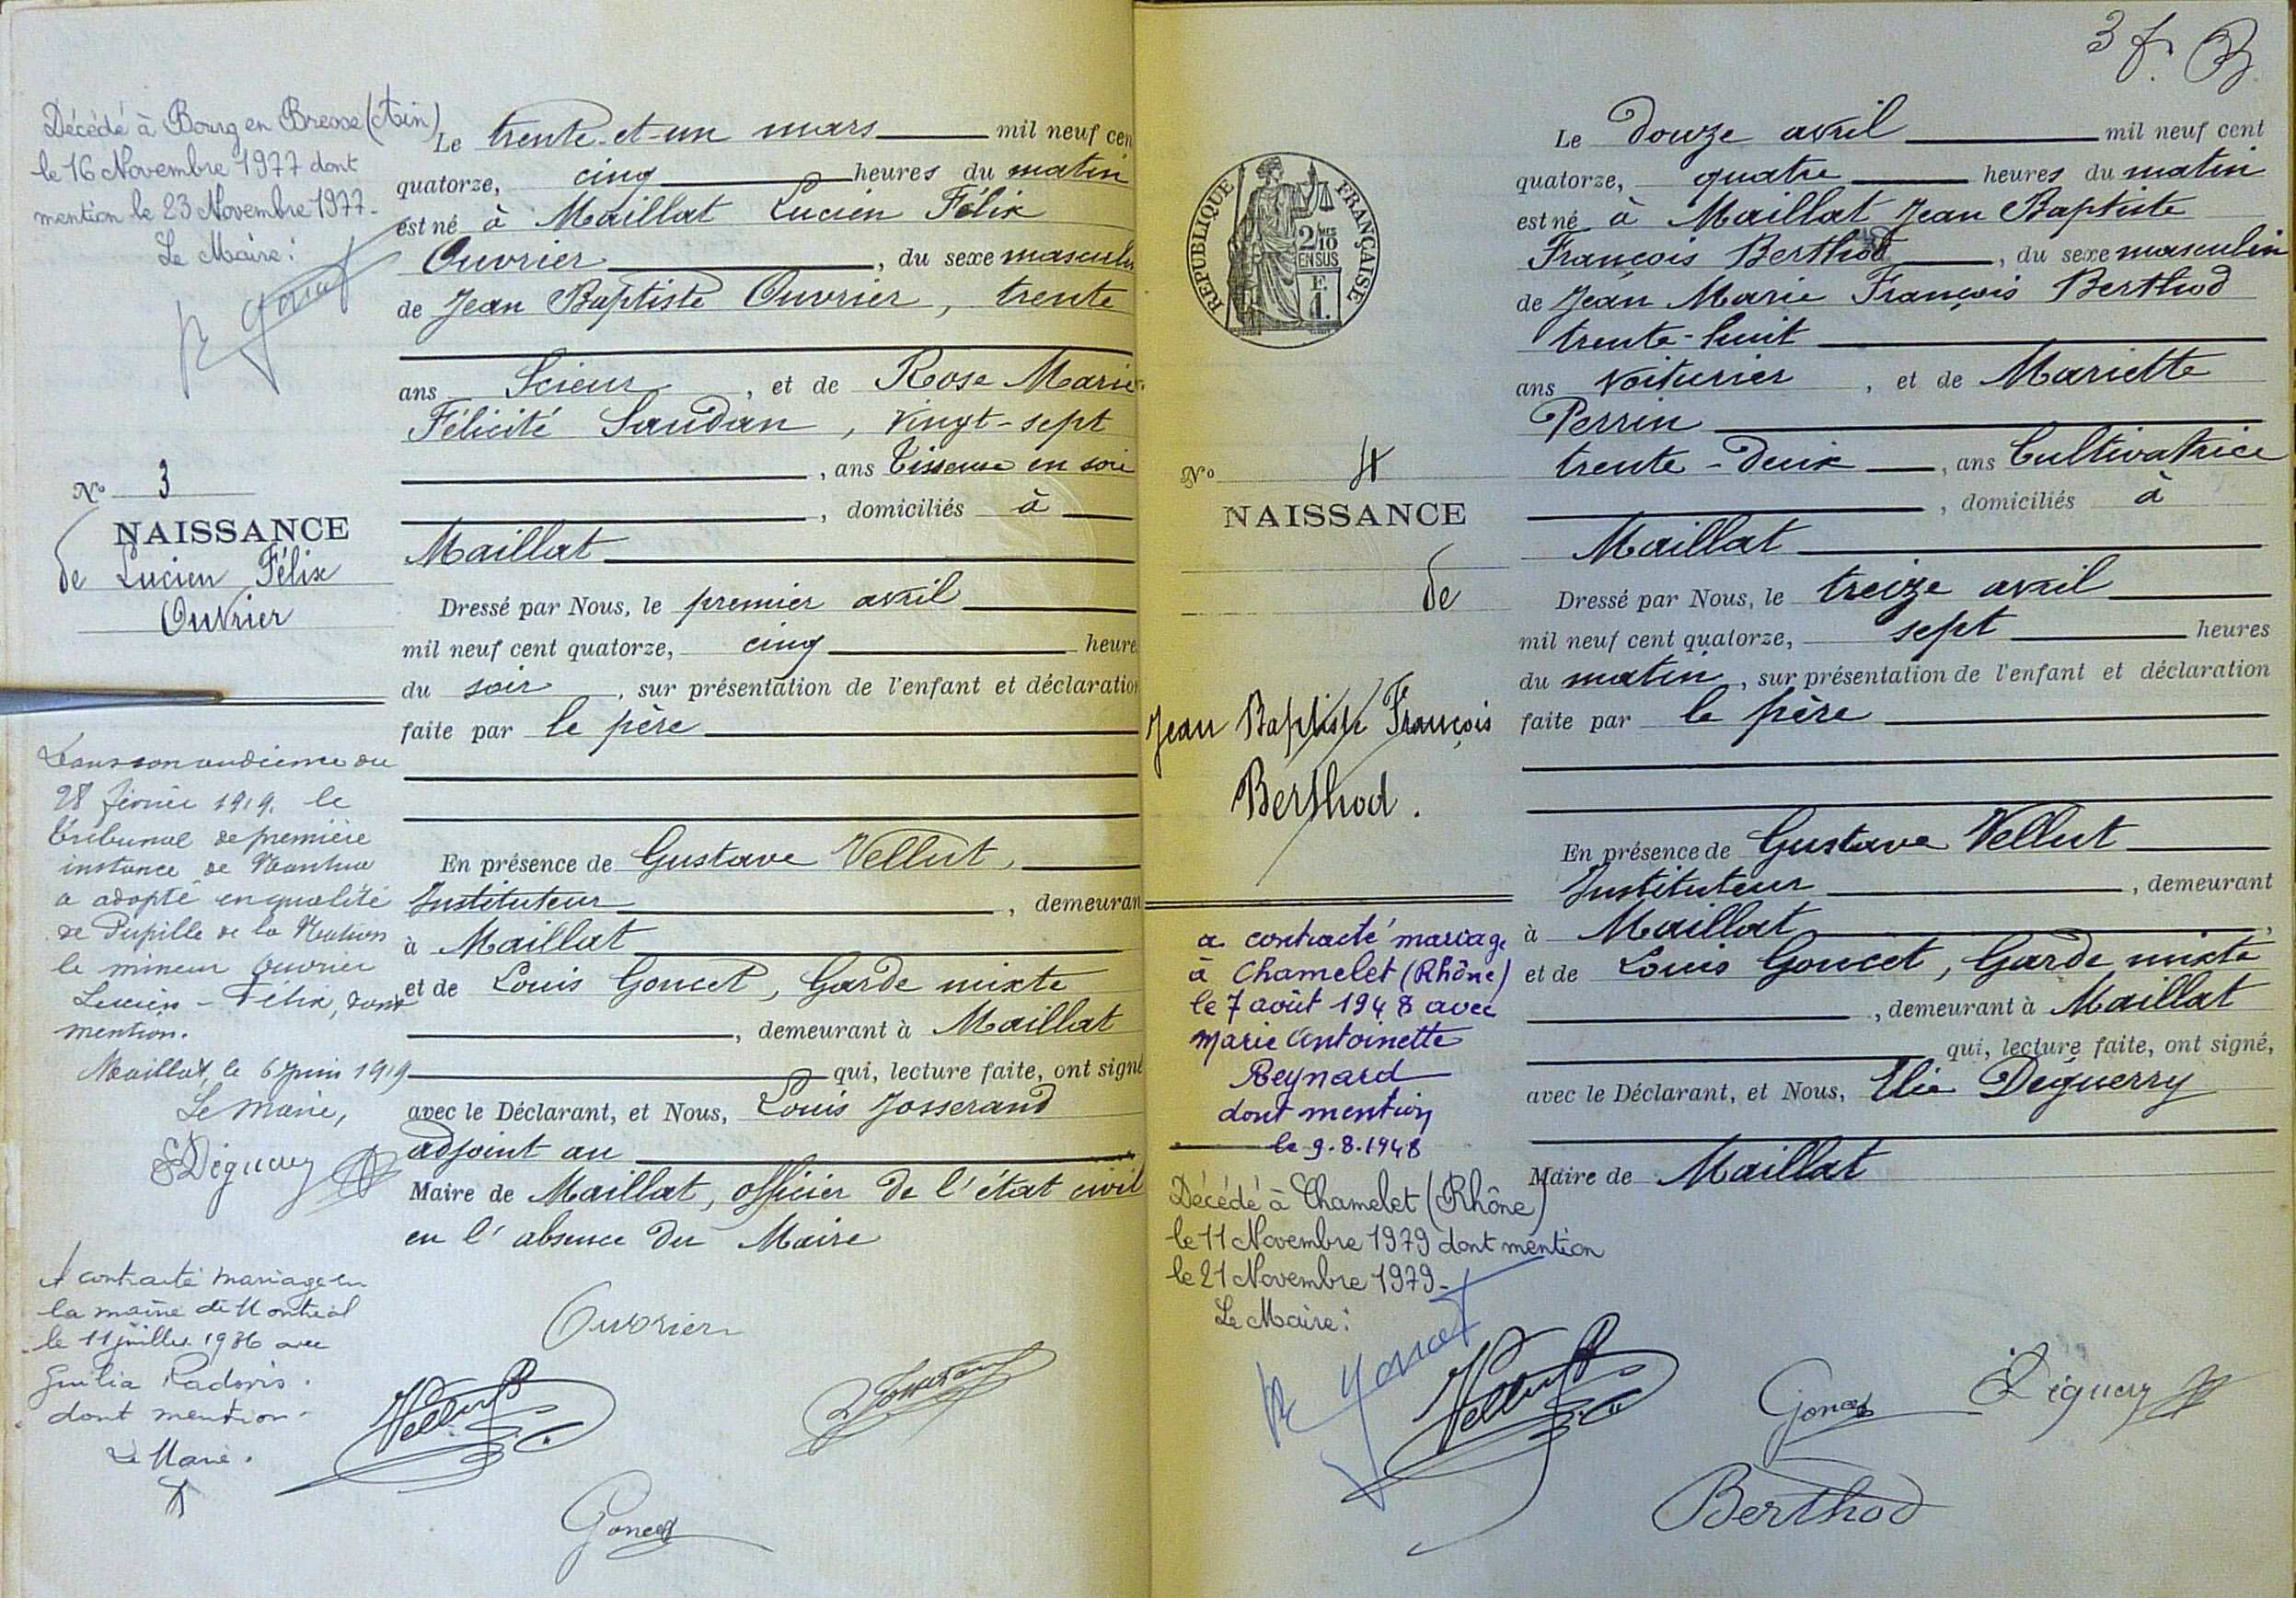 Décédé à Bourg en Bresse (Ain)
le 16 Novembre 1977 dont
mention le 23 Novembre 1977-
Le Maire:
No 3
NAISSANCE
de Lucien Félix
Ouvrier
Dans son audience du
28 février 1919. le
tribunal de première
instance de Nantua
a adopté en qualité
de Pupille de la Nation
le mineur Ouvrier
Lucien-Félix, dont
mention.
Maillat, le 6 juin 1919
Le Maire,
Déguerry
A contracté mariage en
la mairie de Montréal
le 11 juillet 1936 avec
dont mention-
Le Maire.
Le trente-et-un mars mil neuf cen
quatorze, cinq heures du matin
est né à Maillat Lucien Félix
Ouvrier, du sexe masculin
de Jean Baptiste Ouvrier, trente
ans Scieur, et de Rose Marie
Félicité Saudan, vingt-sept
, ans Tisseuse en soie
, domiciliés à
Maillat
Dressé par Nous, le premier avril
mil neuf cent quatorze, cinq heure
du soir, sur présentation de l'enfant et déclaration
faite par le père
En présence de Gustave Vellut,
Instituteur, demeuran
à Maillat
et de Louis Goncet, Garde mixte
, demeurant à Maillat
qui, lecture faite, ont signé
avec le Déclarant, et Nous, Louis Josserand
adjoint au
Maire de Maillat, officier de l'état civil
en l'absence du Maire
Ouvrier
Vellut
L Josserand
Goncet
3 f. B
REPUBLIQUE FRANÇAISE
2/10MES
EN SUS
F.
1.
No 4
NAISSANCE
de
Jean Baptiste François
Berthod.
a contracté mariage
à Chamelet (Rhône)
le 7 août 1948 avec
Marie Antoinette
Reynard
dont mention
le 9.8.1948
Décédé à Chamelet (Rhône)
le 11 Novembre 1979 dont mention
le 21 Novembre 1979-
Le Maire:
Le douze avril mil neuf cent
quatorze, quatre heures du matin
est né à Maillat Jean Baptiste
François Berthod, du sexe masculin
de Jean Marie François Berthod
trente-huit
ans voiturier, et de Mariette
Perrin
trente-deux, ans Cultivatrice
, domiciliés à
Maillat
Dressé par Nous, le treize avril
mil neuf cent quatorze, sept heures
du matin, sur présentation de l'enfant et déclaration
faite par le père
En présence de Gustave Vellut
Instituteur, demeurant
à Maillat,
et de Louis Goncet, Garde mixte
, demeurant à Maillat
qui, lecture faite, ont signé,
avec le Déclarant, et Nous, Elie Déguerry
Maire de Maillat
Vellut
Goncet
Déguerry
Berthod